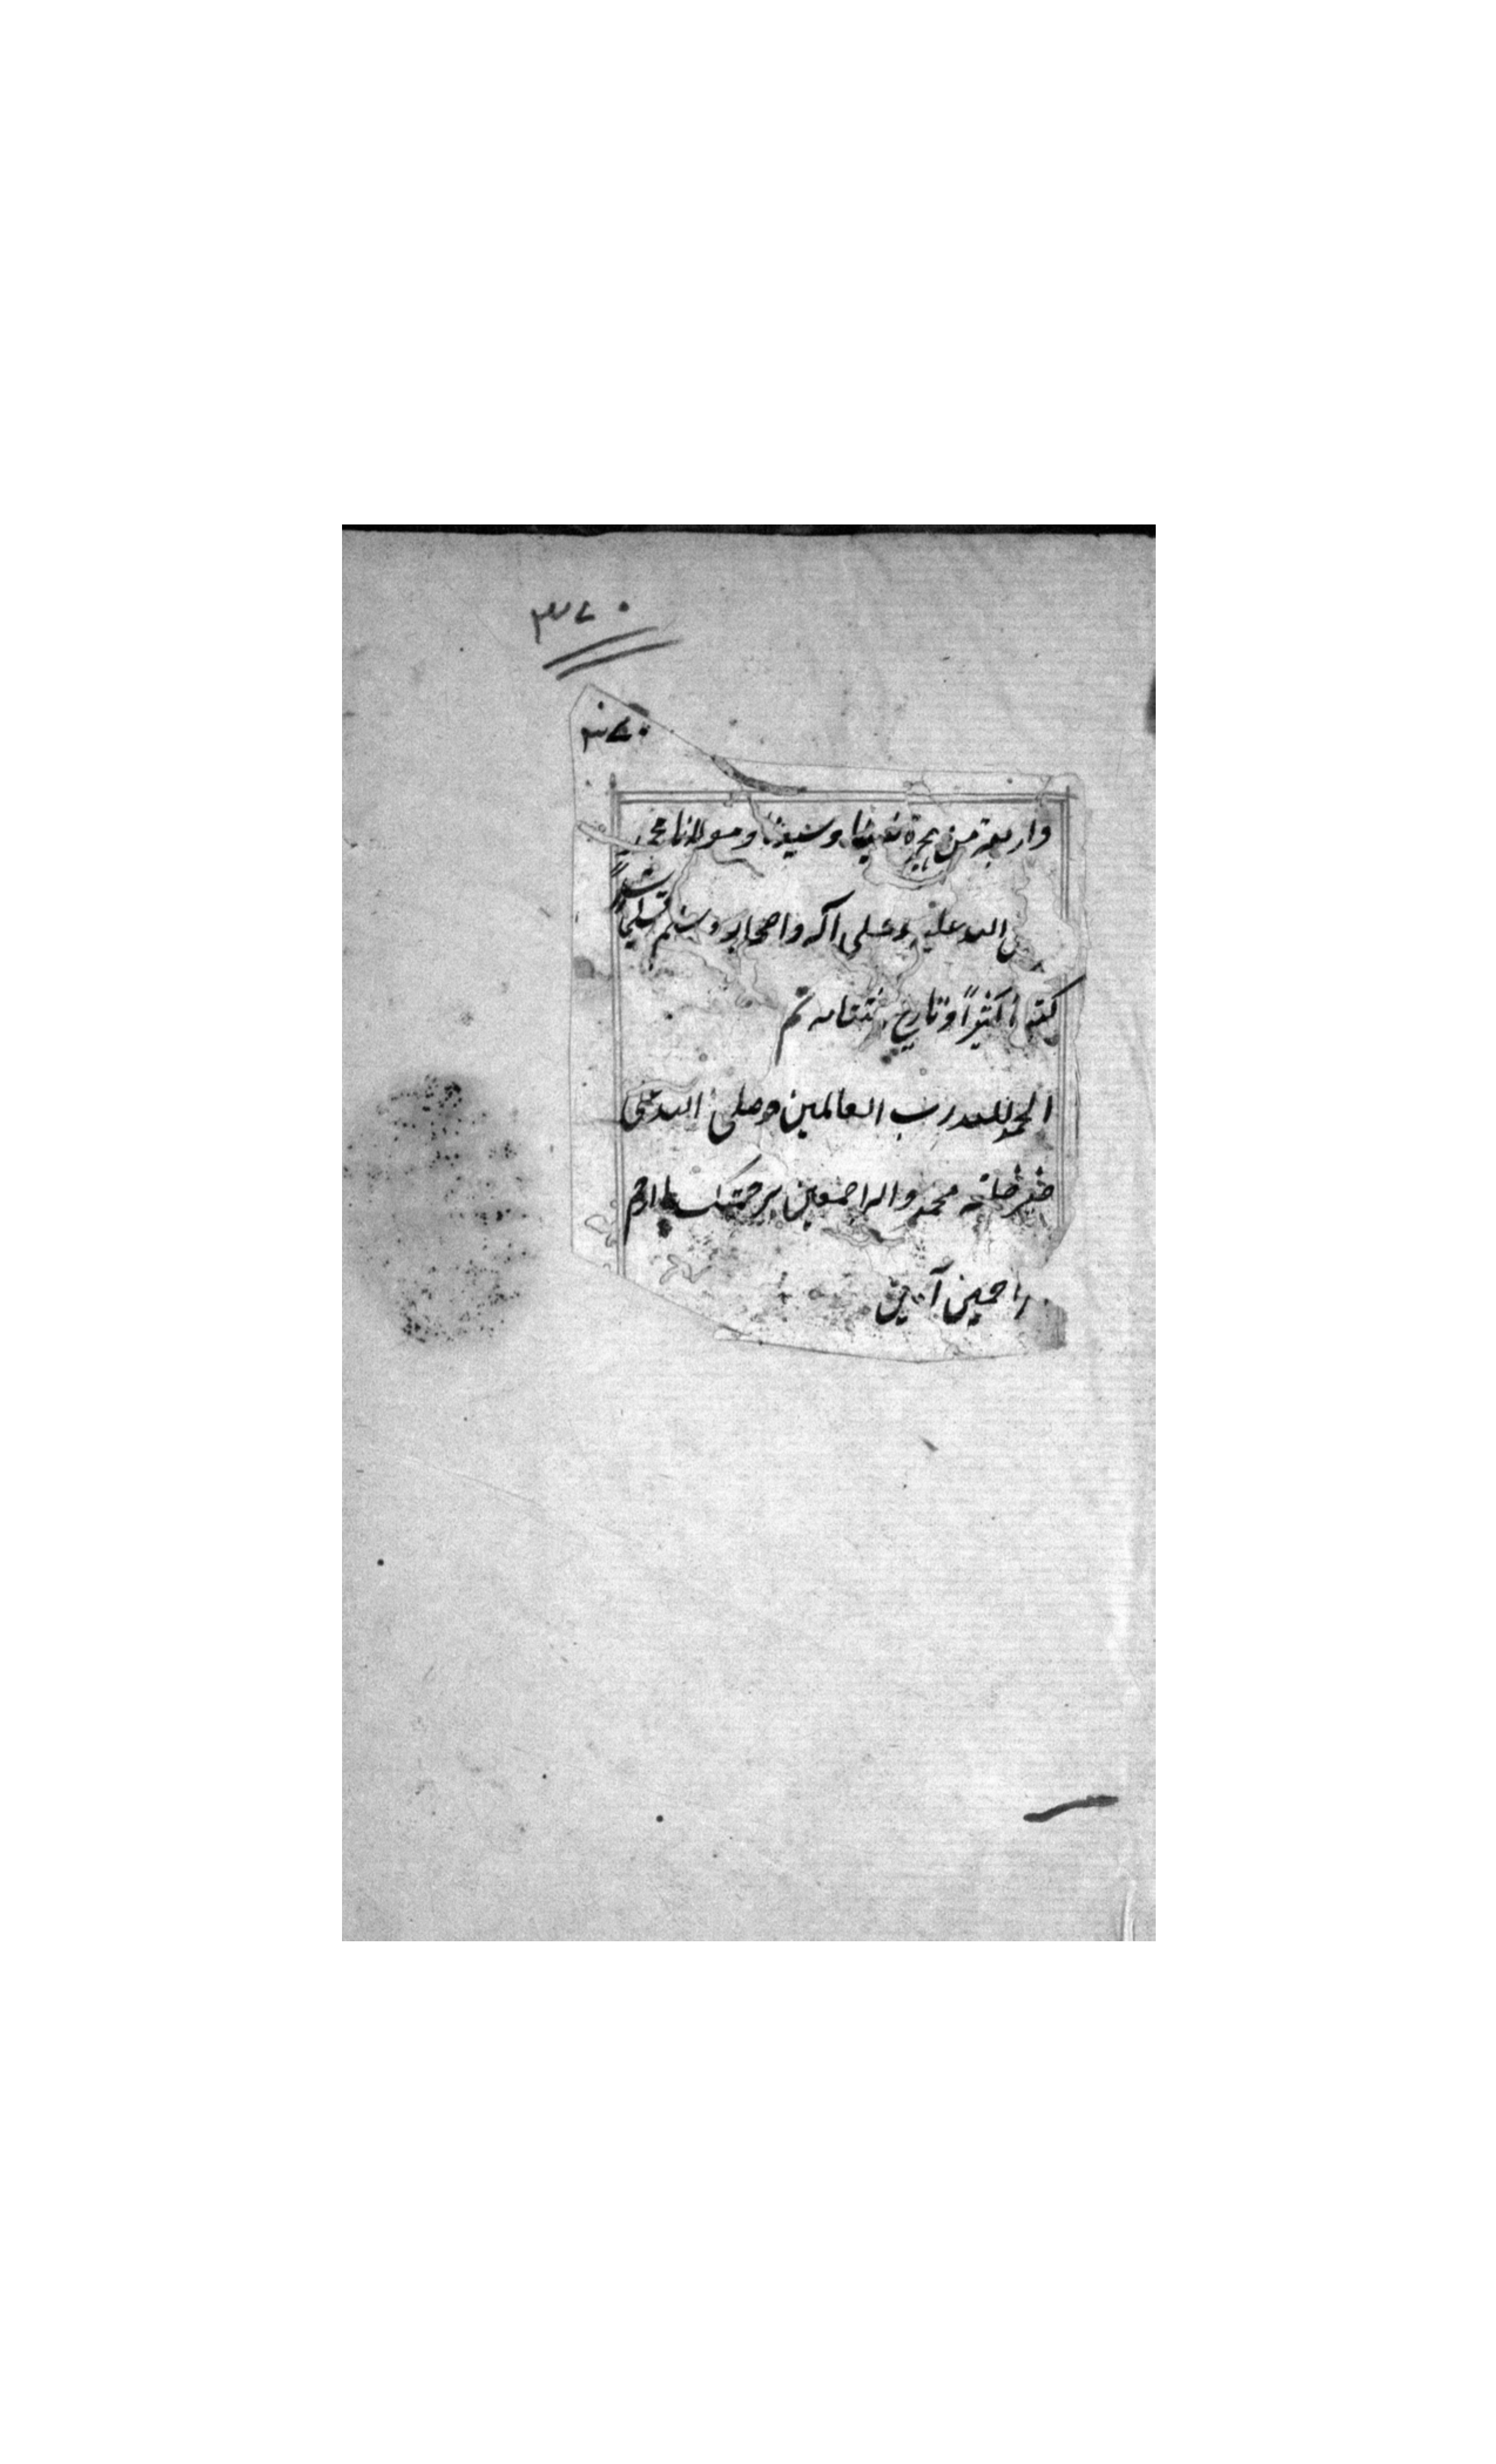 ٣٧٠
٣٧٠
واربعة من هجرة نبينا وشفيعنا ومولانا محمد
الله عليه وعلى آله واصحابه وسلم تسليما
كثيراً وتاريخ تم
الحمد لله رب العالمين وصلى الله على
خير خلقه محمد واله اجمعين برحمتك يا ارحم
الراحمين آمين